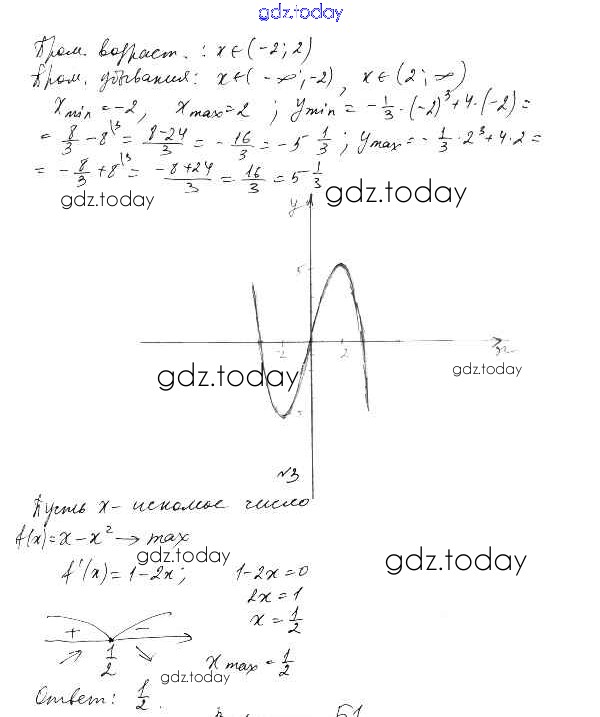 gdz.today
Пром. возраст. : x∈(-2; 2)
Пром. убывания: x∈(-∞; -2), x∈(2; ∞)
x min = -2, x max = 2 ; y min = -1/3·(-2)³+4·(-2)=
= 8/3 - 8\3 = 8-24/3 = -16/3 = -5 1/3 ; y max = -1/3·2³+4·2=
= -8/3 + 8\3 = -8+24/3 = 16/3 = 5 1/3
gdz.today gdz.today
y
5
-2 2 x
gdz.today gdz.today
№3
Пусть x - искомое число
f(x)=x-x² → max
gdz.today gdz.today
f'(x)=1-2x; 1-2x=0
2x=1
x=1/2
+ -
1/2
x max = 1/2
gdz.today
Ответ: 1/2.
51